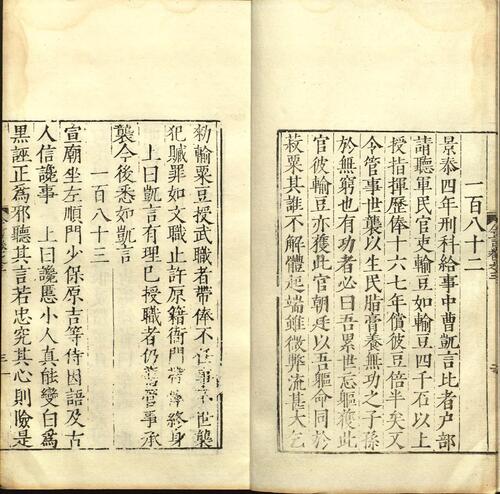 一百八十二
景泰四年刑科給事中曹凱言比者户部
請聽軍民官吏輸豆如輸豆四千石以上
授指揮歷俸十六七年償彼豆倍半矣又
令管事世襲以生民脂膏養無功之子孫
於無窮也有功者必曰吾累世忘軀獲此
官彼輸豆亦獲此官朝廷以吾軀命同於
菽粟其誰不解體起端雖微弊流甚大乞
勑輸粟豆授武職者帶俸不任事不世襲
犯贓罪如文職止許原籍衙門帶俸終身
上曰凱言有理已授職者仍舊管事承
襲今後悉如凱言
一百八十三
宣廟坐左順門少保原吉等侍因語及古
人信讒事 上曰讒慝小人真能變白為
黑誣正為邪聽其言若忠究其心則險是